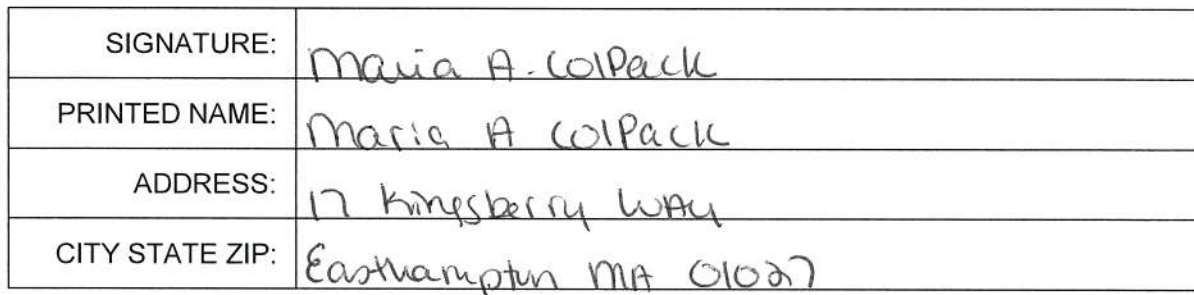 SIGNATURE: Maria A. ColPack
PRINTED NAME: Maria A ColPack
ADDRESS: 17 Kingsberry WAy
CITY STATE ZIP: Easthampton MA 01027